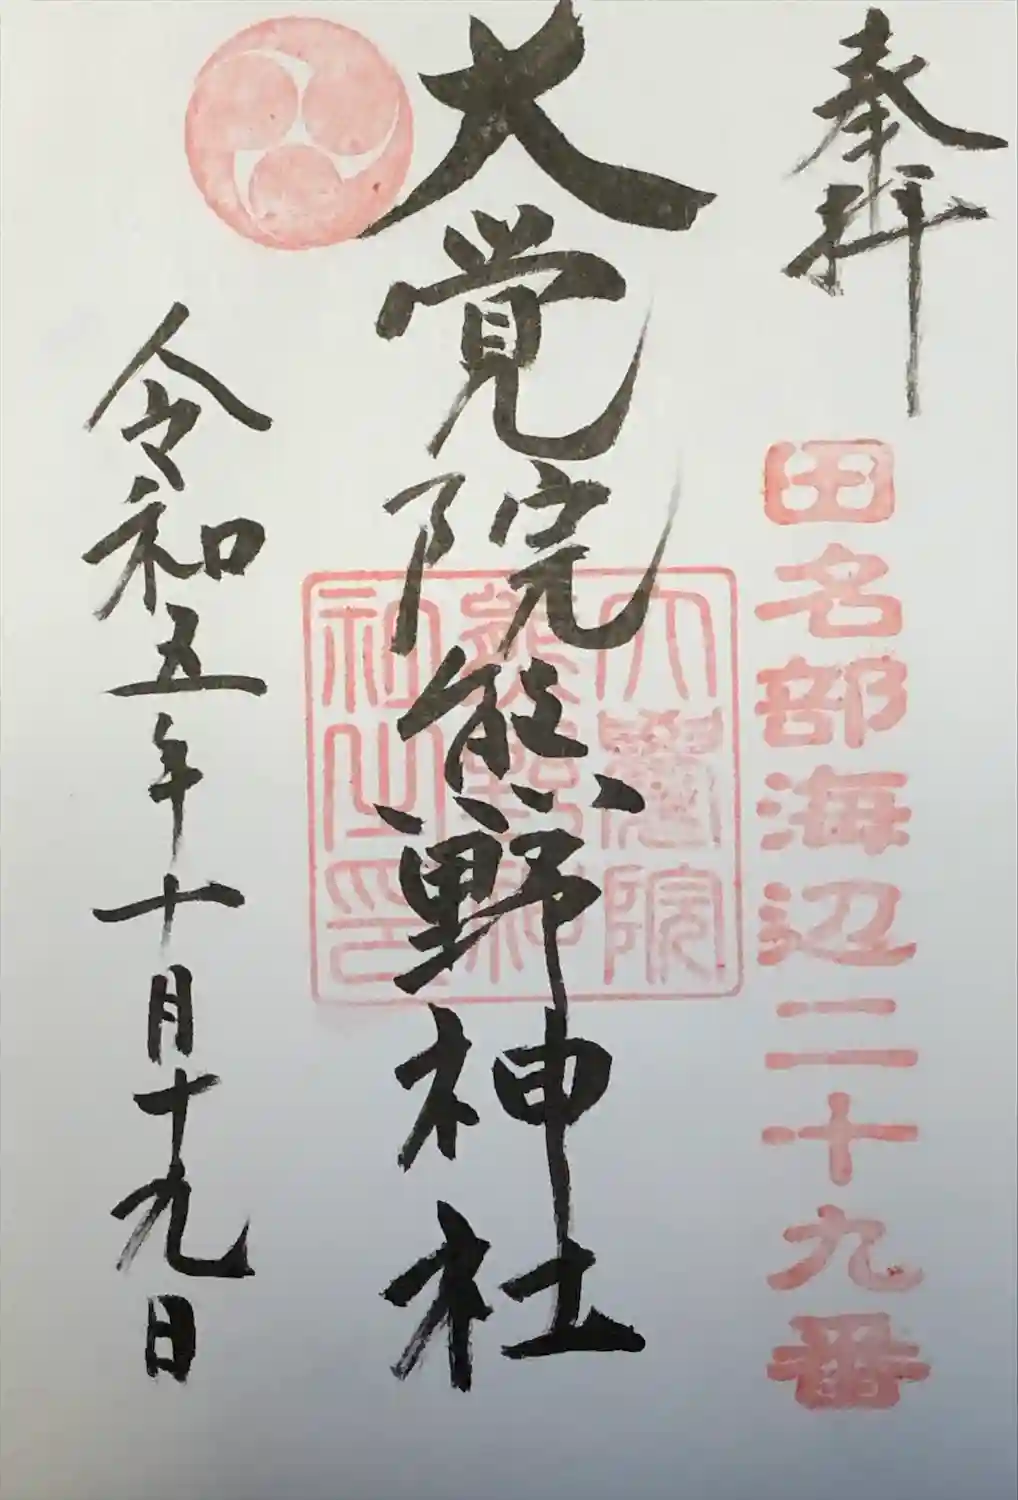 奉拝
田名部海辺二十九番
大覚院熊野神社
大覺院
熊野神
社之印
令和五年十月十九日